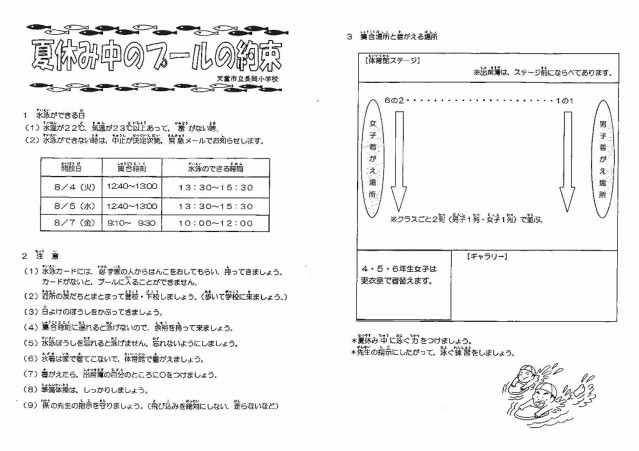 夏休み中のプールの約束
天童市立長岡小学校
1 水泳ができる日
（1）水温が22℃、気温が23℃以上あって、雷がない時。
（2）水泳ができない時は、中止が決定次第、緊急メールでお知らせします。
開放日 集合時刻 水泳のできる時間
8／4（火） 12:40～13:00 13：30～15：30
8／5（水） 12:40～13:00 13：30～15：30
8／7（金） 9:10～ 9:30 10：00～12：00
2 注意
（1）水泳カードには、必ず家の人からはんこをおしてもらい、持ってきましょう。
カードがないと、プールに入ることができません。
（2）近所の友だちとまとまって登校・下校しましょう。（歩いて学校に来ましょう。）
（3）日よけのぼうしをかぶってきましょう。
（4）集合時刻に遅れると泳げないので、余裕を持って来ましょう。
（5）水泳ぼうしを忘れると泳げません。忘れないようにしましょう。
（6）水着は家で着てこないで、体育館で着がえましょう。
（7）着がえたら、出席簿の自分のところに〇をつけましょう。
（8）準備体操は、しっかりしましょう。
（9）係の先生の指示を守りましょう。（飛び込みを絶対にしない、走らないなど）
3 集合場所と着がえる場所
【体育館ステージ】
※出席簿は、ステージ前にならべてあります。
6の2・・・・・・・・・・・・・・・・・・・・1の1
女子着がえ場所
男子着がえ場所
※クラスごと2列（男子1列・女子1列）で並ぶ。
4・5・6年生女子は
更衣室で着替えます。
【ギャラリー】
＊夏休み中に泳ぐ力をつけましょう。
＊先生の指示にしたがって、泳ぐ練習をしましょう。